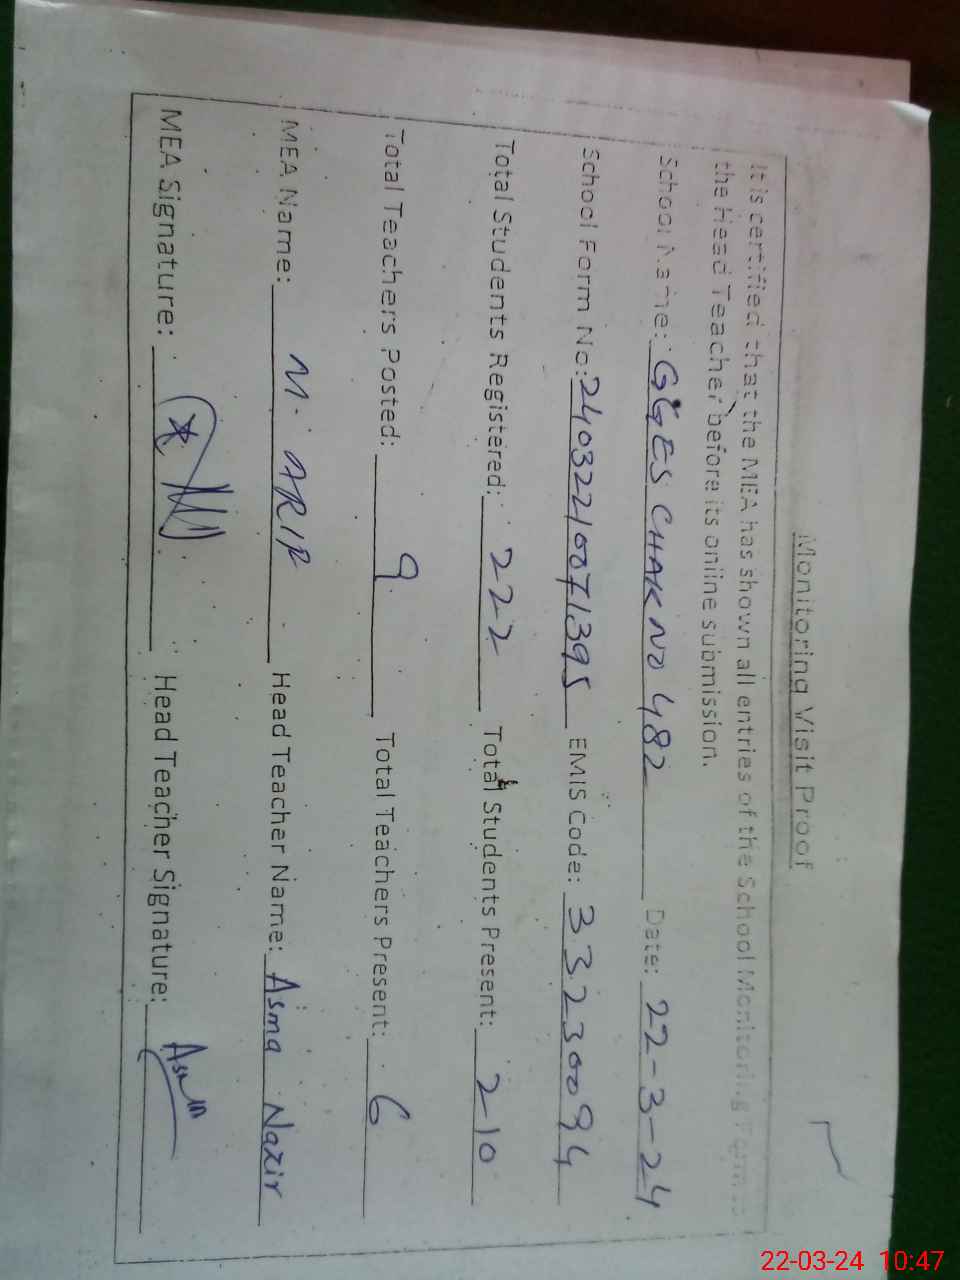 Monitoring Visit Proof
It is certified that the MEA has shown all entries of the School Monitoring Form to
the Head Teacher before its online submission.
School Name: GGES CHAK NO 482 Date: 22-3-24
School Form No: 24032210071395 EMIS Code: 33230094
Total Students Registered: 222 Total Students Present: 210
Total Teachers Posted: 9 Total Teachers Present: 6
MEA Name: M. ARIF Head Teacher Name: Asma Nazir
MEA Signature: Head Teacher Signature:
22-03-24 10:47